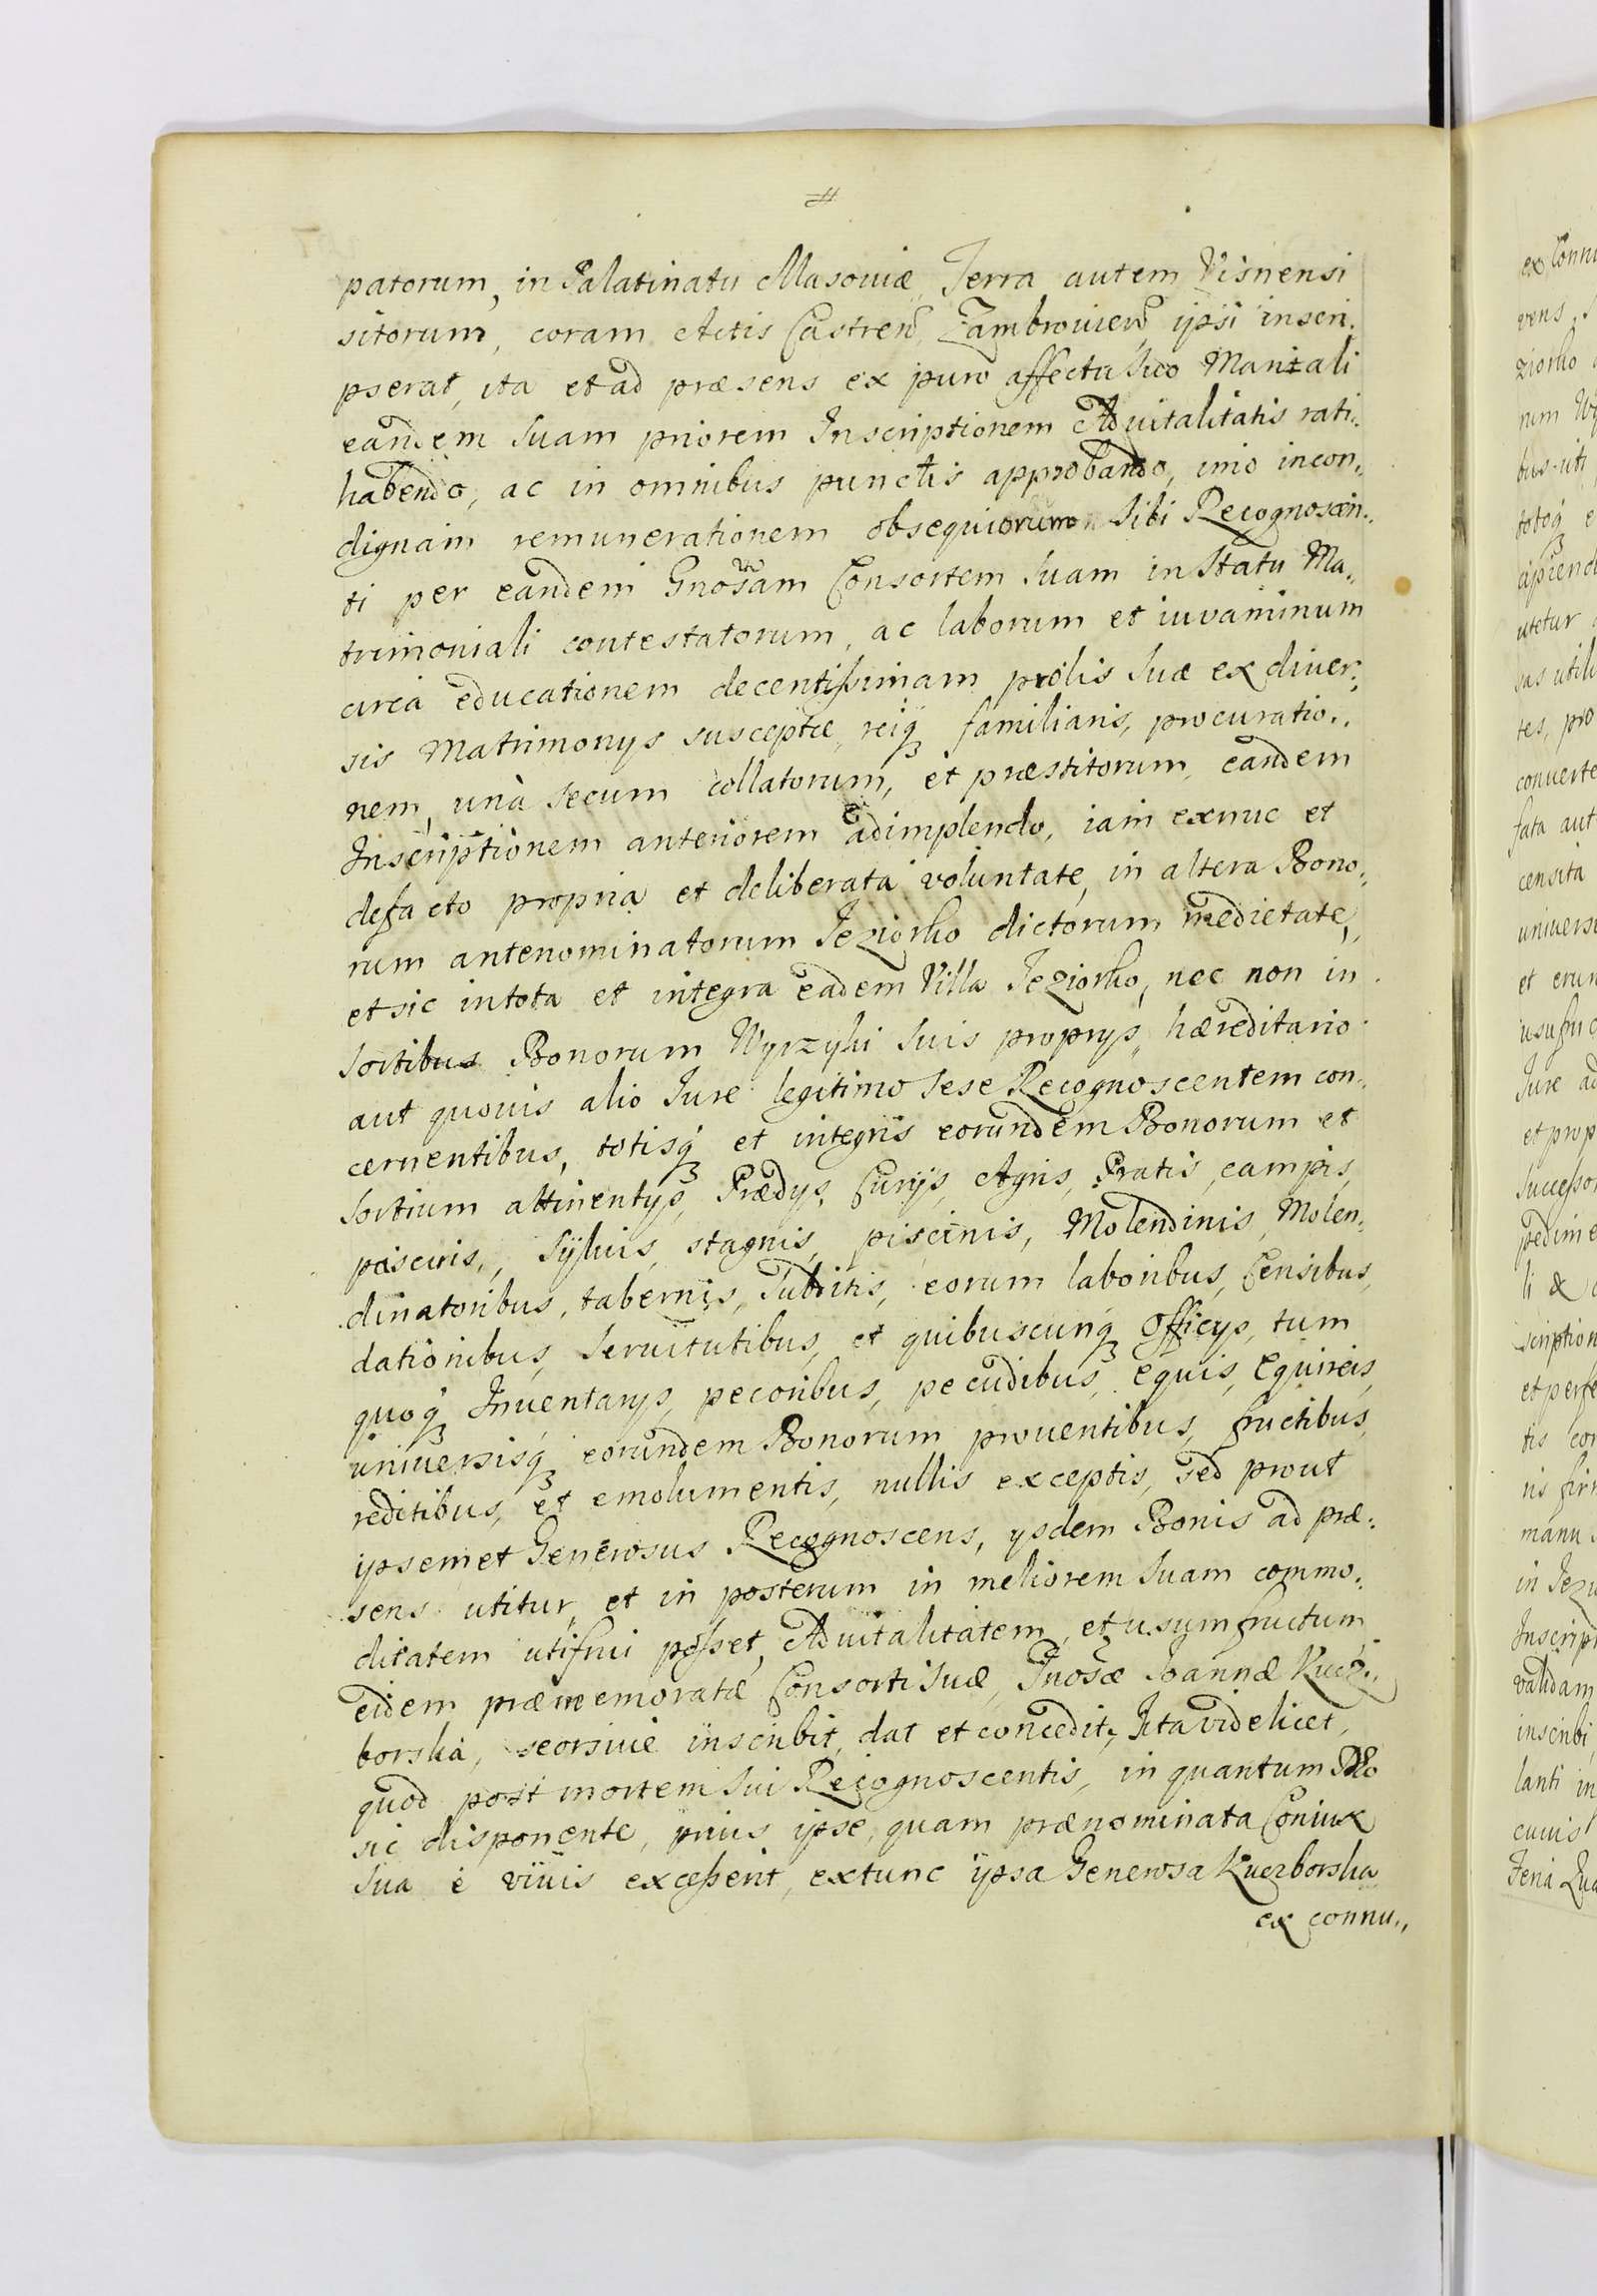 patorum, in Palatinatu Masoviæ, Terra autem Visnensi
sitorum, coram Actis Castren Zambrovien ipsi inscri,
pserat, ita et ad præsens ex puro affectu suo Maritali
eandem suam priorem Inscriptionem Advitalitatis rati,,
habendo, ac in omnibus punctis approbando, imò incon,,
dignam remunerationem obsequiorum Sibi Recognoscen,,
ti per eandem Gnosam Consortem Suam in Statu Ma,,
trimoniali contestatorum, ac laborum et iuvaminum
circa educationem decentissimam prolis Suæ ex diver,,
sis Matrimonys susceptæ, reiq familiaris, procuratio,,
nem, unà Secum collatorum, et præstitorum, eandem
Inscriptionem anteriorem adimplendo, iam exnunc et
defacto propria et deliberata voluntate, in altera Bono,,
rum antenominatorum Jeziorko dictorum medietate,
et sic in tota et integra eadem Villa Jeziorko, nec non in
Sortibus Bonorum Wyrzyki Suis proprys, hæreditario
aut quovis alio Jure legitimo Sese Recognoscentem con,,
cernentibus, totisq et integris eorundem Bonorum et
Sortium attinentys, Prædys, Curijs, Agris, Pratis, campis,
pascuis, Sylvis, stagnis, piscinis, Molendinis, Molen,,
dinatoribus, tabernis, Subditis, eorum laboribus, Censibus,
dationibus, Servitutibus, et quibuscunq Officys, tum
quoq Inventarys, pecoribus, pecudibus, equis, Equireis,
universisq eorundem Bonorum proventibus, fructibus,
reditibus, et emolumentis, nullis exceptis, sed prout
ipsemet Generosus Recognoscens, ysdem Bonis ad præ,,
sens utitur, et in posterum in meliorem Suam commo,,
ditatem utifrui posset, Advitalitatem, et usumfructum
eidem præmemoratæ Consorti Suæ, Gnosæ Joannæ Kucz,,
borska, seorsive inscribit, dat et concedit, Ita videlicet,
quod post mortem Sui Recognoscentis, in quantum Deo
sic disponente, prius ipse, quam prænominata Coniux
Sua è vivis excesserit, extunc ipsa Generosa Kuczborska
ex connu,,